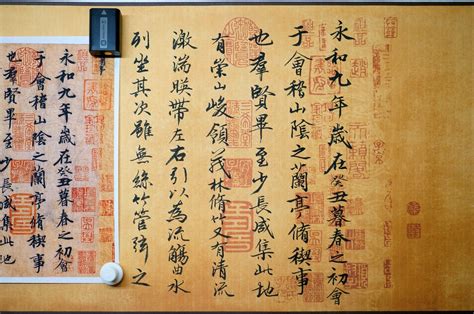 永和九年歲在癸丑暮春之初會
于會稽山陰之蘭亭脩稧事
也羣賢畢至少長咸集此地
有崇山峻領茂林脩竹又有清流
激湍暎帶左右引以為流觴曲水
列坐其次雖無絲竹管弦之
永和九年歲在癸丑暮春之初會
于會稽山陰之蘭亭脩稧事
也羣賢畢至少長咸集此地